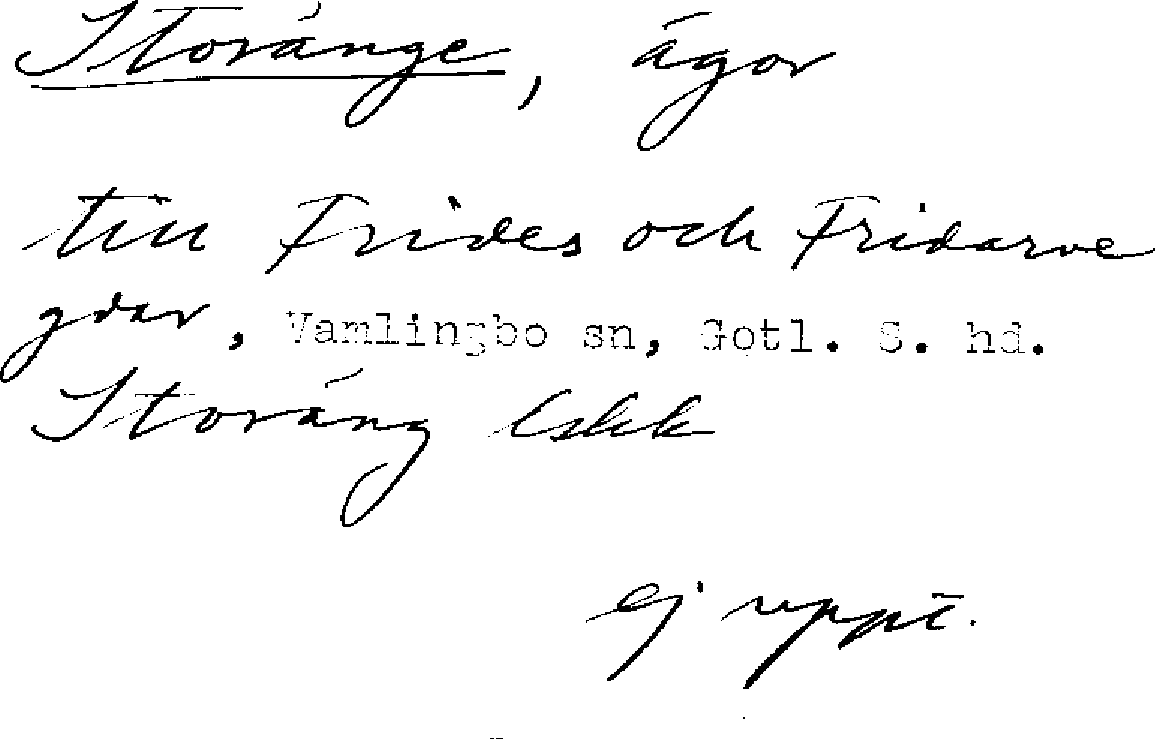 Storänge, ägor
till Frides och Fridarve
gdar, Vamlingbo sn, Gotl. S. hd.
Storäng
ej uppt.